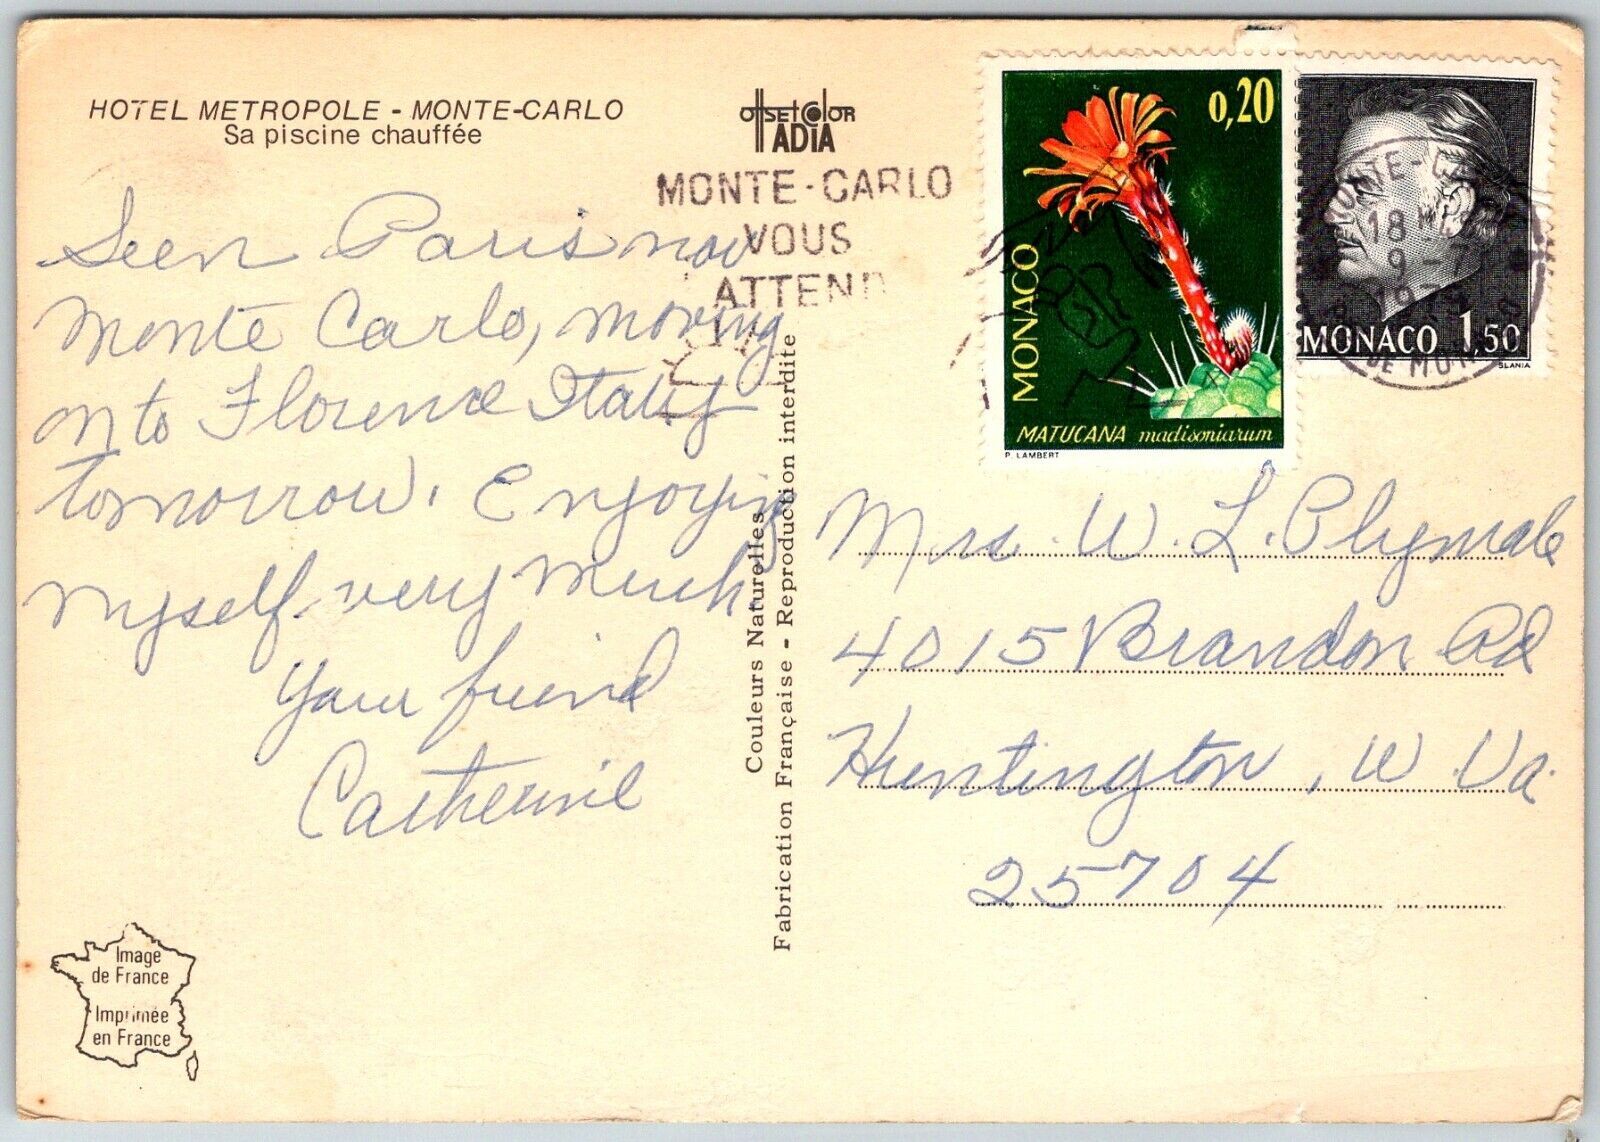 HOTEL METROPOLE - MONTE-CARLO
Sa piscine chauffée
offset color
ADIA
MONTE-CARLO
VOUS
ATTEND
Seen Paris now
Monte Carlo, moving
on to Florence Italy
tomorrow. Enjoying
myself very much
Your friend
Catherine
Image
de France
Imprimée
en France
Couleurs Naturelles
Fabrication Française - Reproduction interdite
0,20
MONACO
MATUCANA madisoniarum
P. LAMBERT
MONACO 1,50
SLANIA
MONTE-CA
18
9-7
DE MON
Mrs. W. L. Plymale
4015 Brandon Rd
Huntington, W. Va.
25704